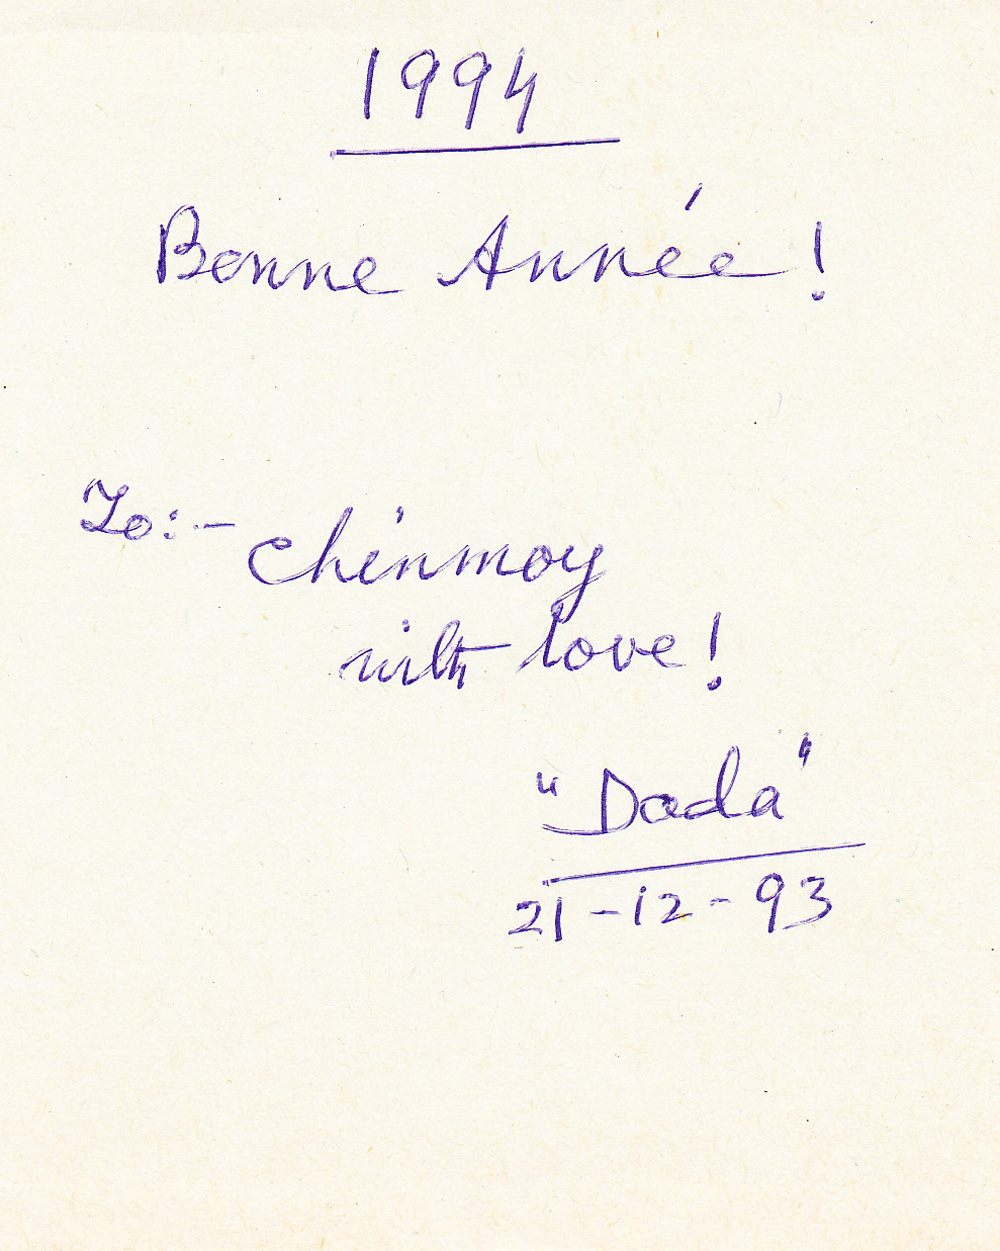 1994
Bonne Année!
To:- Chinmoy
with love!
"Dada"
21-12-93